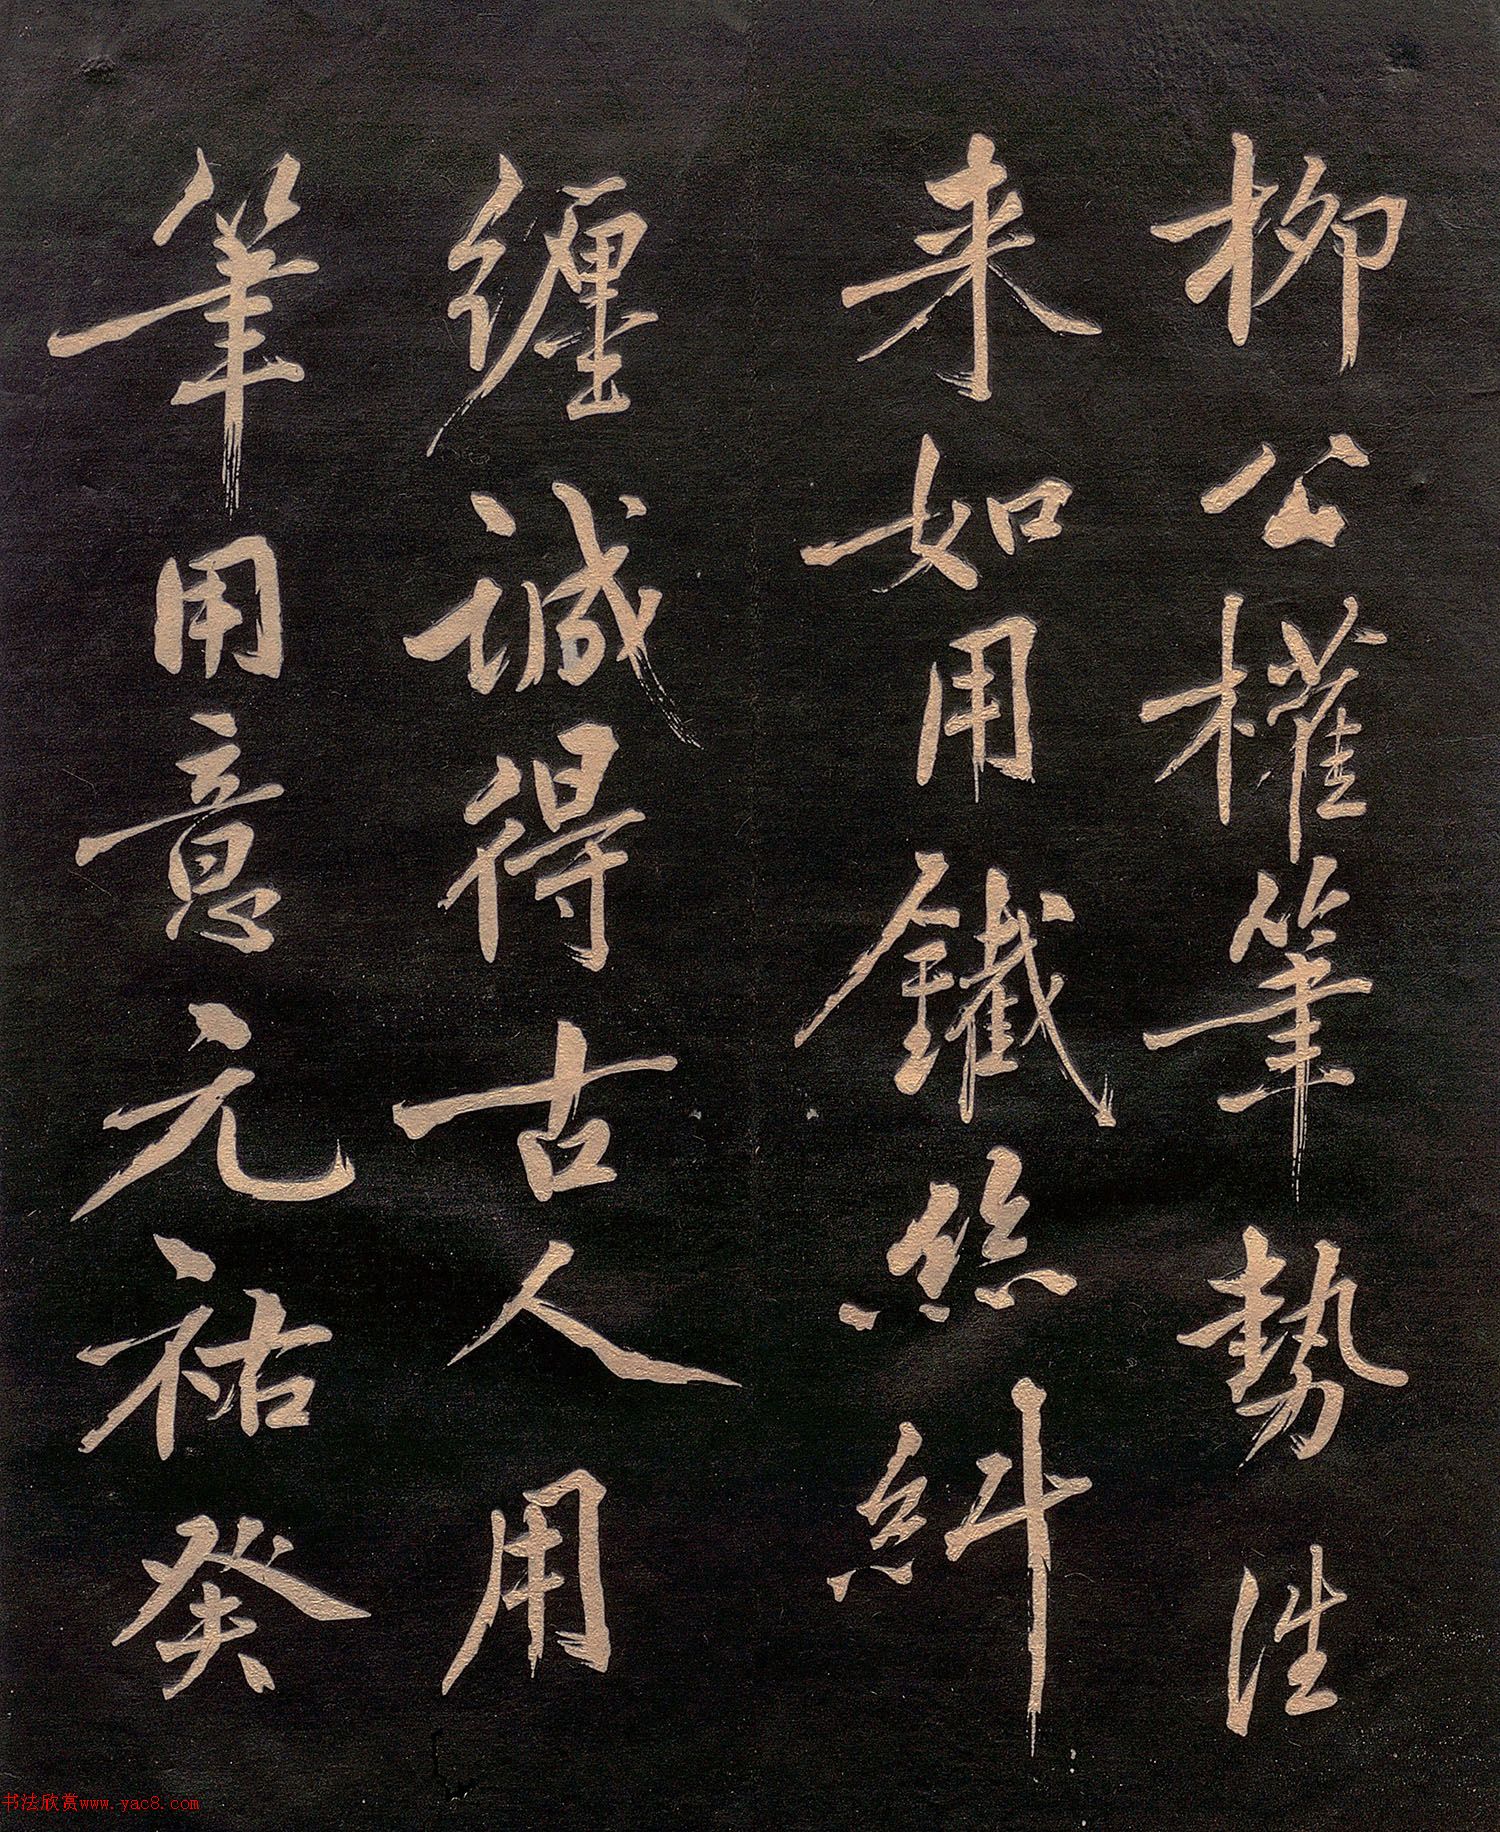 柳公權筆勢往
来如用鐵絲糾
纏誠得古人用
筆用意元祐癸
书法欣赏www.yac8.com